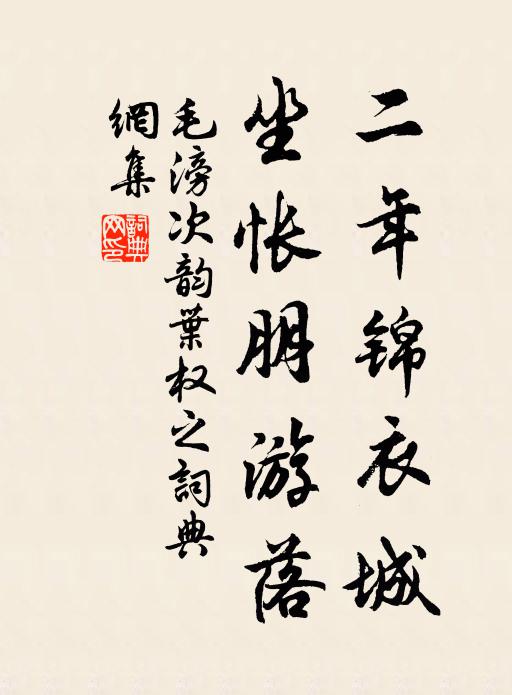 二年锦衣城
坐怅朋游落
毛滂次韵葉权之詞典
網集
詞典
网印